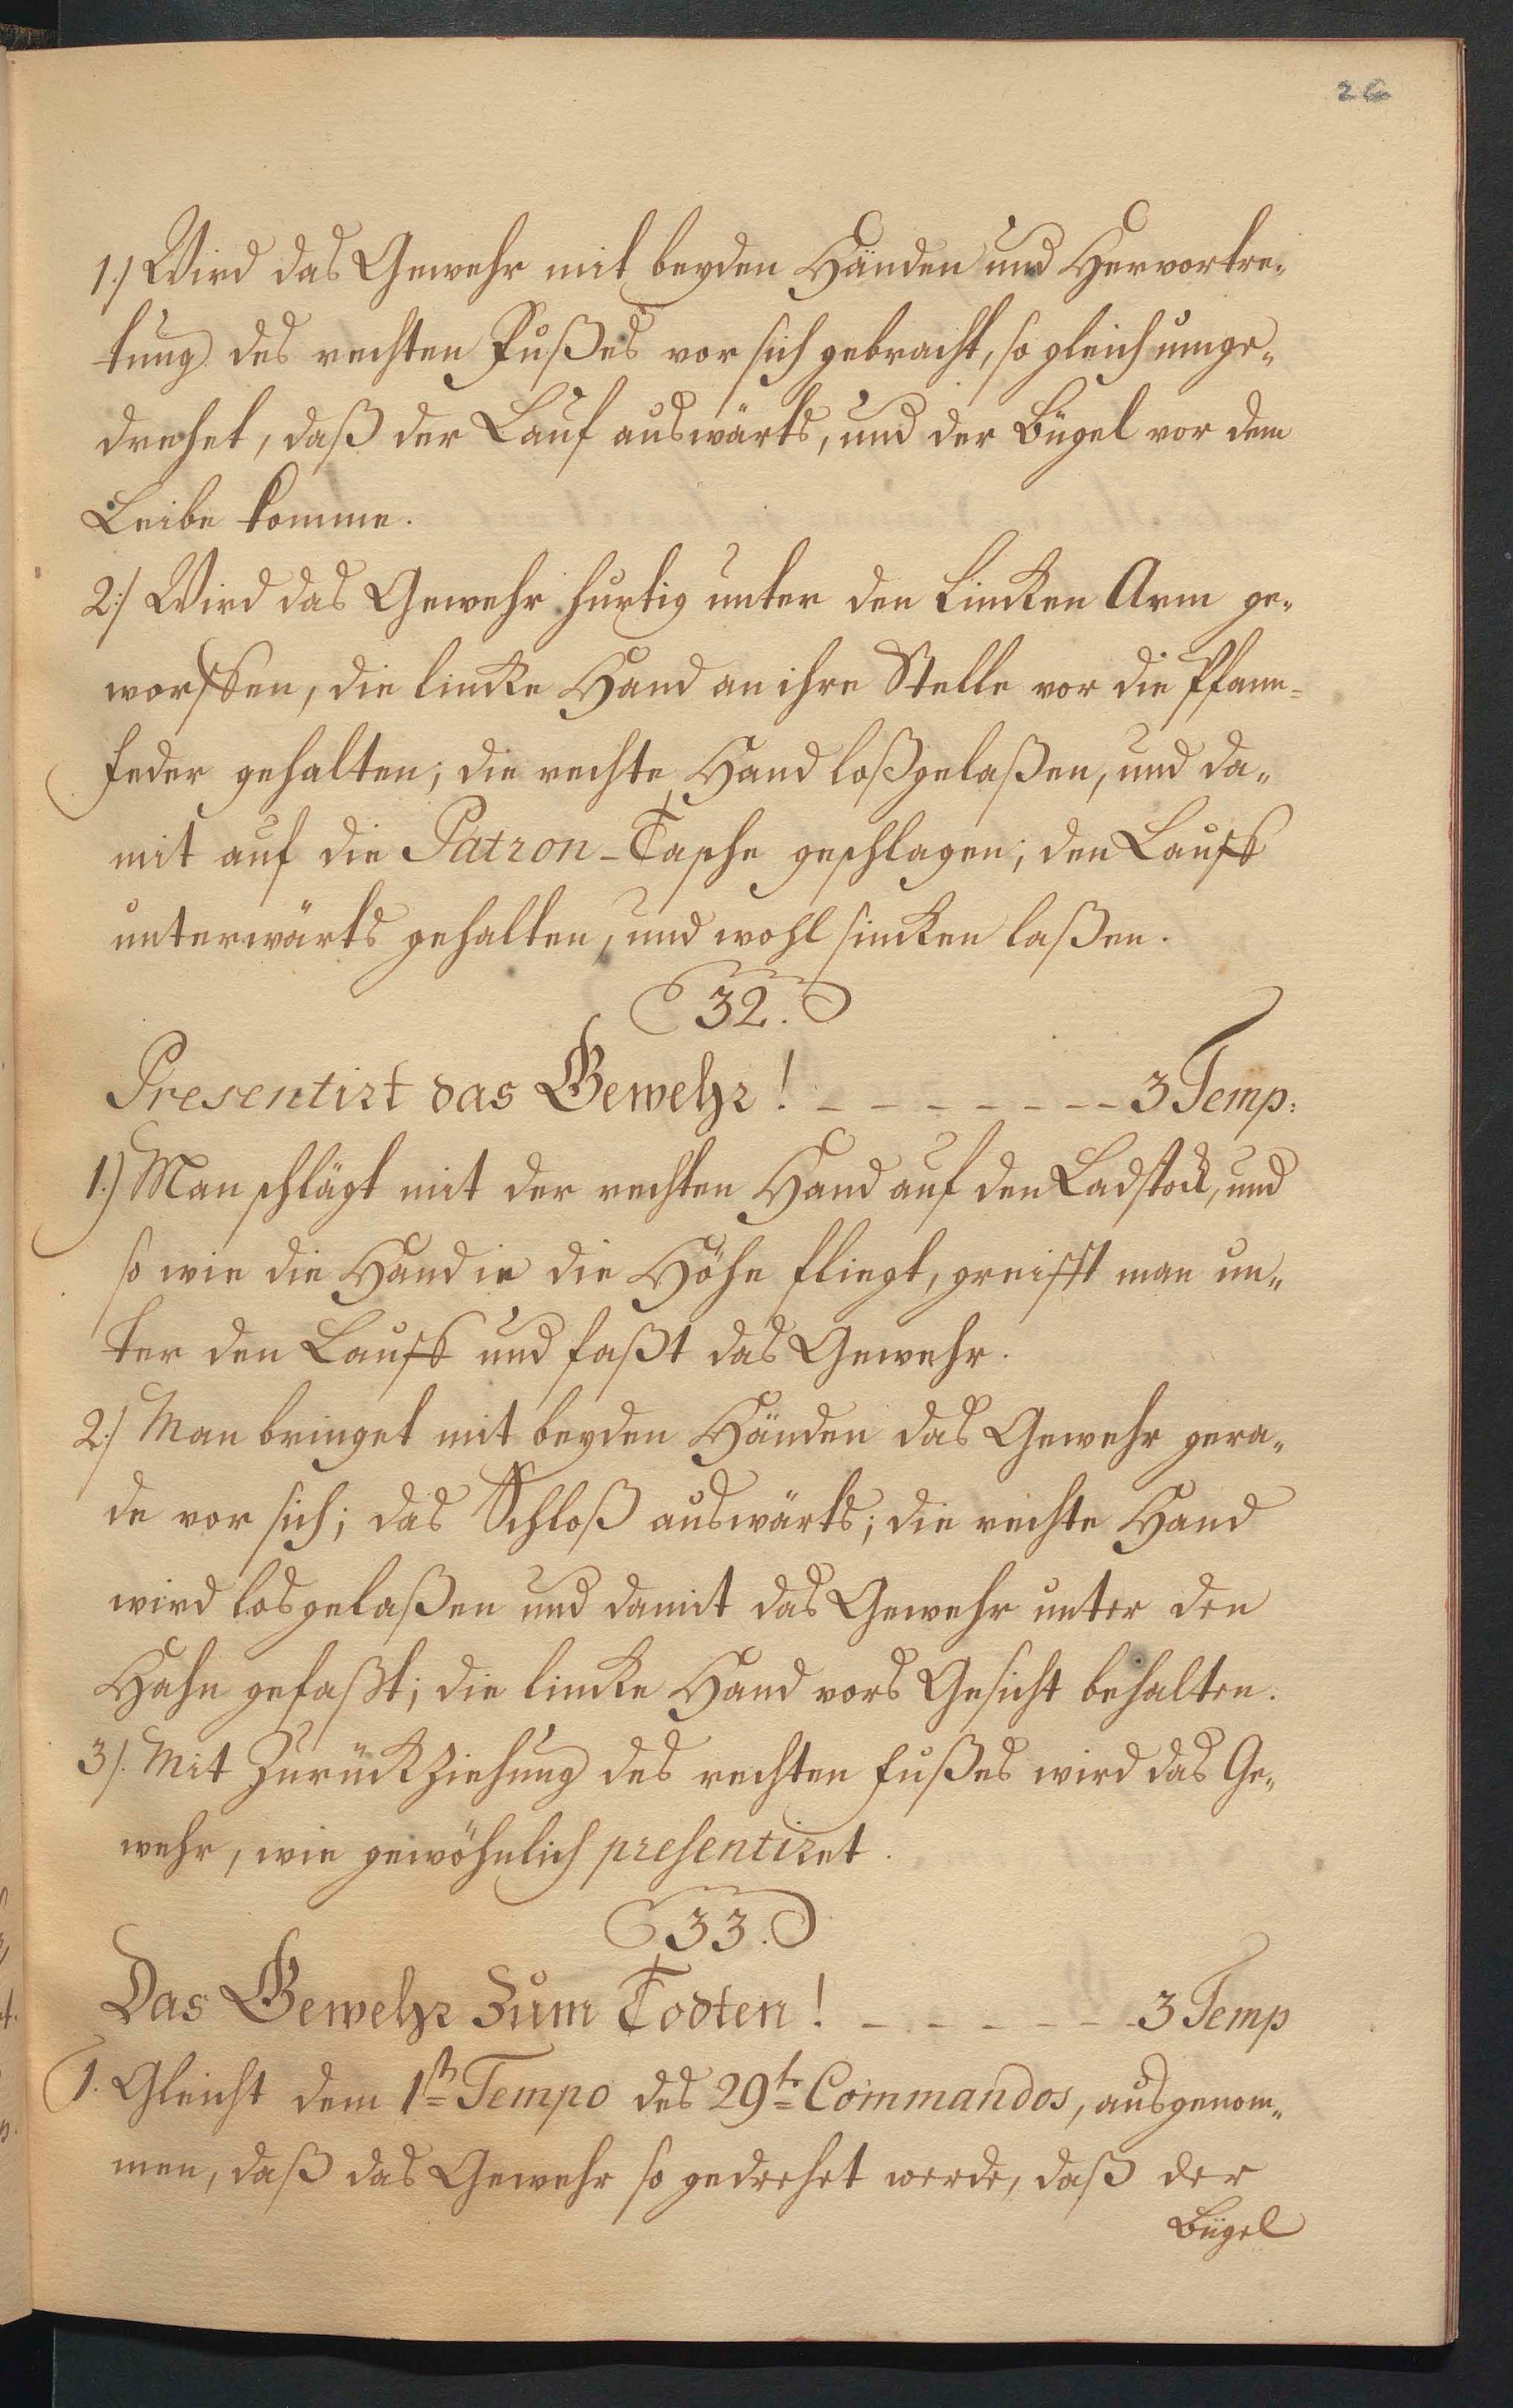 26
1./ Wird das Gewehr mit beyden Händen und Hervortre„
tung des rechten Fußes vor sich gebracht, so gleich umge„
drehet, daß der Lauf auswärts, und der Bügel vor dem
Leibe komme.
2./ Wird das Gewehr hurtig unter den Lincken Arm ge„
worffen, die lincke Hand an ihre Stelle vor die Pfann=
feder gehalten; die rechte Hand loßgelaßen, und da„
mit auf die Patron-Tasche geschlagen; den Lauff
unterwärts gehalten, und wohl sincken laßen.
32.
Presentirt das Gewehr! - - - - - - - - 3 Temp:
1.) Man schlägt mit der rechten Hand auf den Ladstock, und
so wie die Hand in die Höhe fliegt, greifft man un„
ter den Lauff und faßt das Gewehr.
2./ Man bringet mit beyden Händen das Gewehr gera„
de vor sich; das Schloß auswärts; die rechte Hand
wird losgelaßen und damit das Gewehr unter den
Hahn gefaßt; die lincke Hand vors Gesicht behalten.
3/. Mit Zurückziehung des rechten Fußes wird das Ge„
wehr, wie gewöhnlich presentiret.
33.
Das Gewehr zum Todten! - - - - - - 3 Temp
1. Gleicht dem 1stn Tempo des 29tn Commandos, ausgenom„
men, daß das Gewehr so gedrehet werde, daß der
Bügel